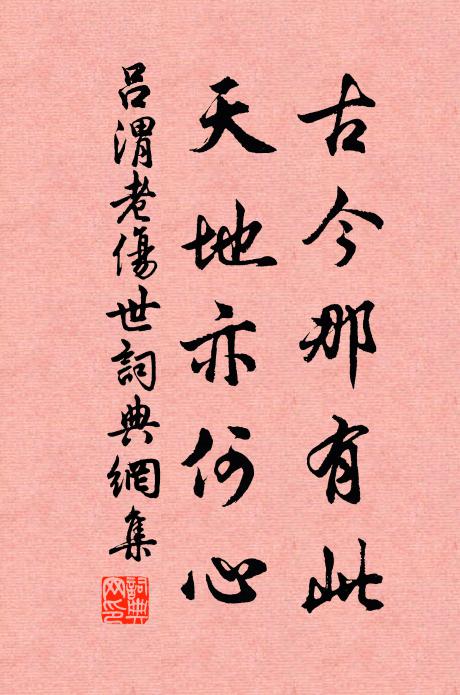 古今那有此
天地亦何心
呂渭老傷世詞典網集
詞典網印